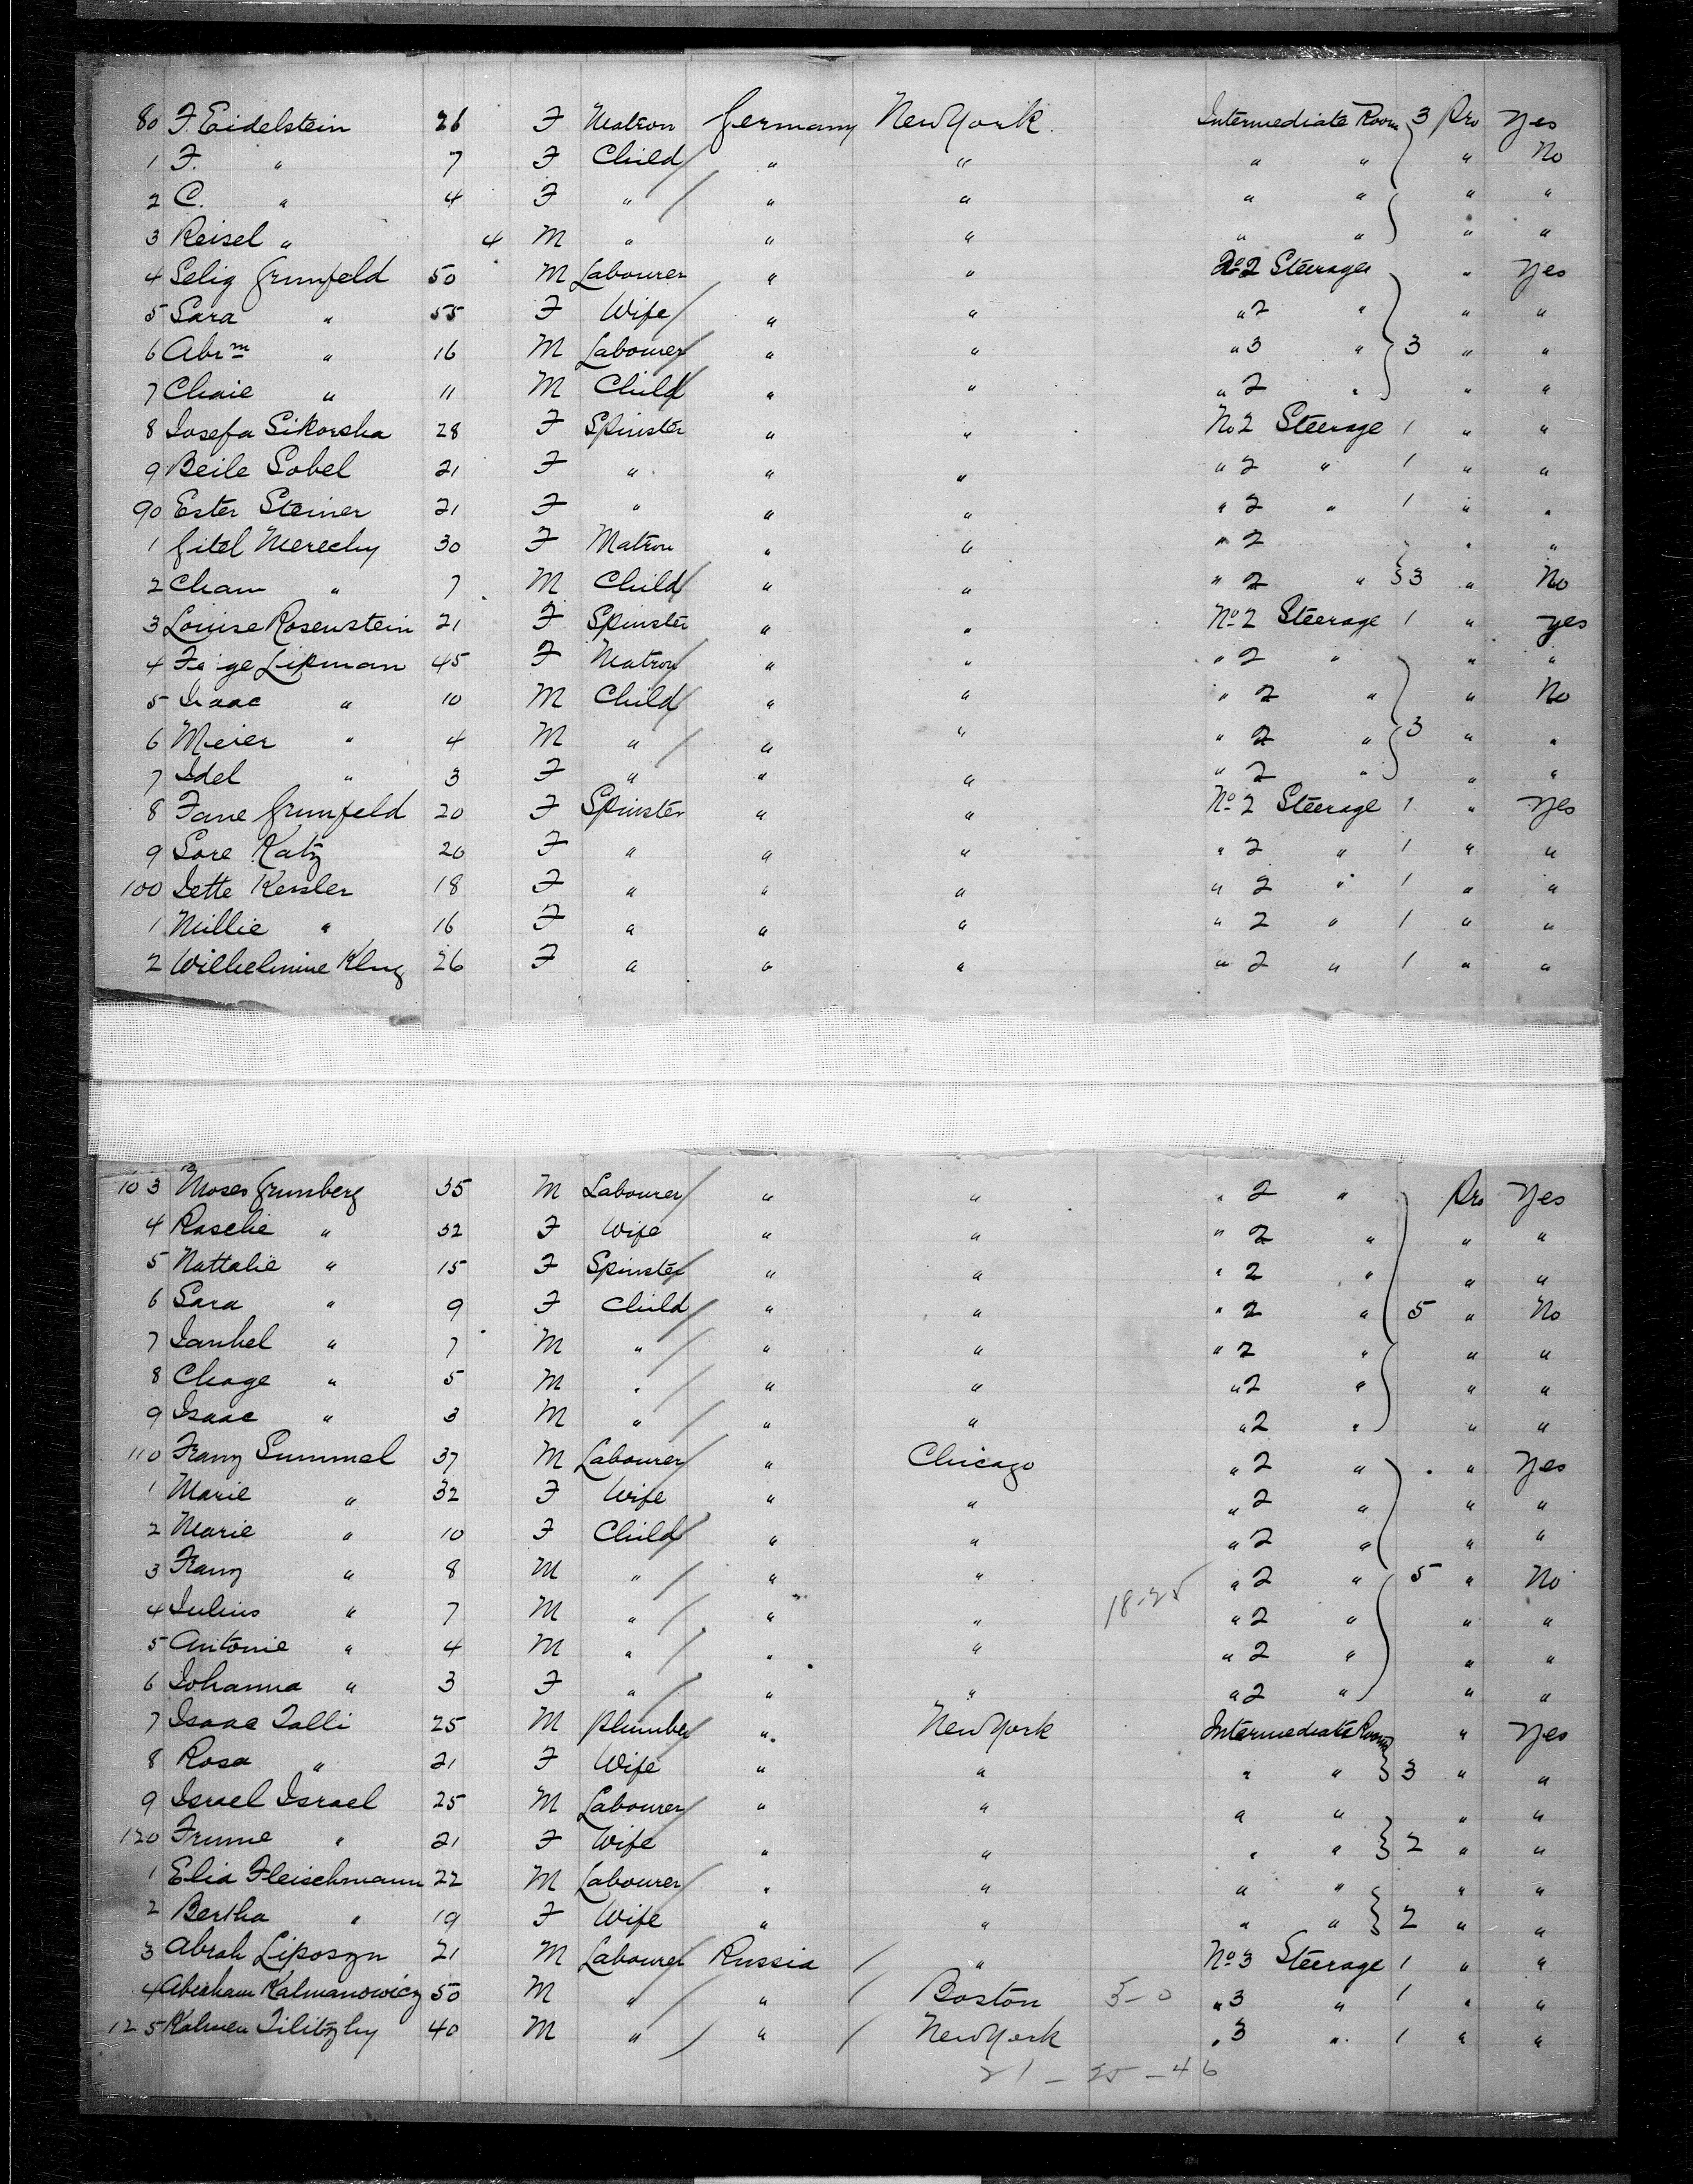 80 F. Eidelstein 26 F Matron Germany New York. Intermediate Room 3 Pro Yes
1 F. " 7 F Child " " " " " No
2 C. " 4 F " " " " " " "
3 Reisel " 4 M " " " " " " "
4 Selig Grunfeld 50 M Labourer " " No 2 Steerage " Yes
5 Sara " 55 F Wife " " " 2 " " "
6 Abrm " 16 M Labourer " " " 3 " 3 " "
7 Chaie " 11 M Child " " " 2 " " "
8 Josefa Sikorska 28 F Spinster " " No 2 Steerage 1 " "
9 Beile Sobel 21 F " " " " 2 " 1 " "
90 Ester Steiner 21 F " " " " 2 " 1 " "
1 Gitel Merechy 30 F Matron " " " 2 " "
2 Cham " 7 M Child " " " 2 " 3 " No
3 Louise Rosenstein 21 F Spinster " " No 2 Steerage 1 " Yes
4 Feige Lipman 45 F Matron " " " 2 " " "
5 Isaac " 10 M Child " " " 2 " " No
6 Meier " 4 M " " " " 2 " 3 " "
7 Idel " 3 F " " " " 2 " " "
8 Fane Grunfeld 20 F Spinster " " No 2 Steerage 1 " Yes
9 Sore Katz 20 F " " " " 2 " 1 " "
100 Jette Kessler 18 F " " " " 2 " 1 " "
1 Millie " 16 F " " " " 2 " 1 " "
2 Wilhelmine Klug 26 F " " " " 2 " 1 " "
103 Moses Grunberg 35 M Labourer " " " 2 " Pro Yes
4 Raschie " 32 F Wife " " " 2 " " "
5 Nattalie " 15 F Spinster " " " 2 " " "
6 Sara " 9 F Child " " " 2 " 5 " No
7 Jankel " 7 M " " " " 2 " " "
8 Chage " 5 M " " " " 2 " " "
9 Isaac " 3 M " " " " 2 " " "
110 Franz Summel 37 M Labourer " Chicago " 2 " " Yes
1 Marie " 32 F Wife " " " 2 " " "
2 Marie " 10 F Child " " " 2 " " "
3 Franz " 8 M " " " " 2 " 5 " No
4 Julius " 7 M " " " 18-25 " 2 " " "
5 Antonie " 4 M " " " " 2 " " "
6 Johanna " 3 F " " " " 2 " " "
7 Isaac Talli 25 M Plumber " New York Intermediate Room " Yes
8 Rosa " 21 F Wife " " " " 3 " "
9 Israel Israel 25 M Labourer " " " " " "
120 Frume " 21 F Wife " " " " 2 " "
1 Elia Fleischmann 22 M Labourer " " " " " "
2 Bertha " 19 F Wife " " " " 2 " "
3 Abrah Liposzn 21 M Labourer Russia " No 3 Steerage 1 " "
4 Abraham Kalmanowicz 50 M " " Boston 5-0 " 3 " 1 " "
125 Kalmen 40 M " " New York " 3 " 1 " "
21 - 25 - 46